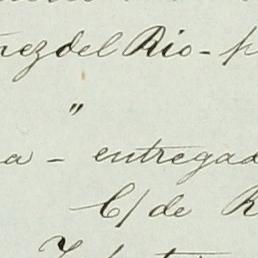 ñez del Rio - p
"
a - entregad
C/ de R